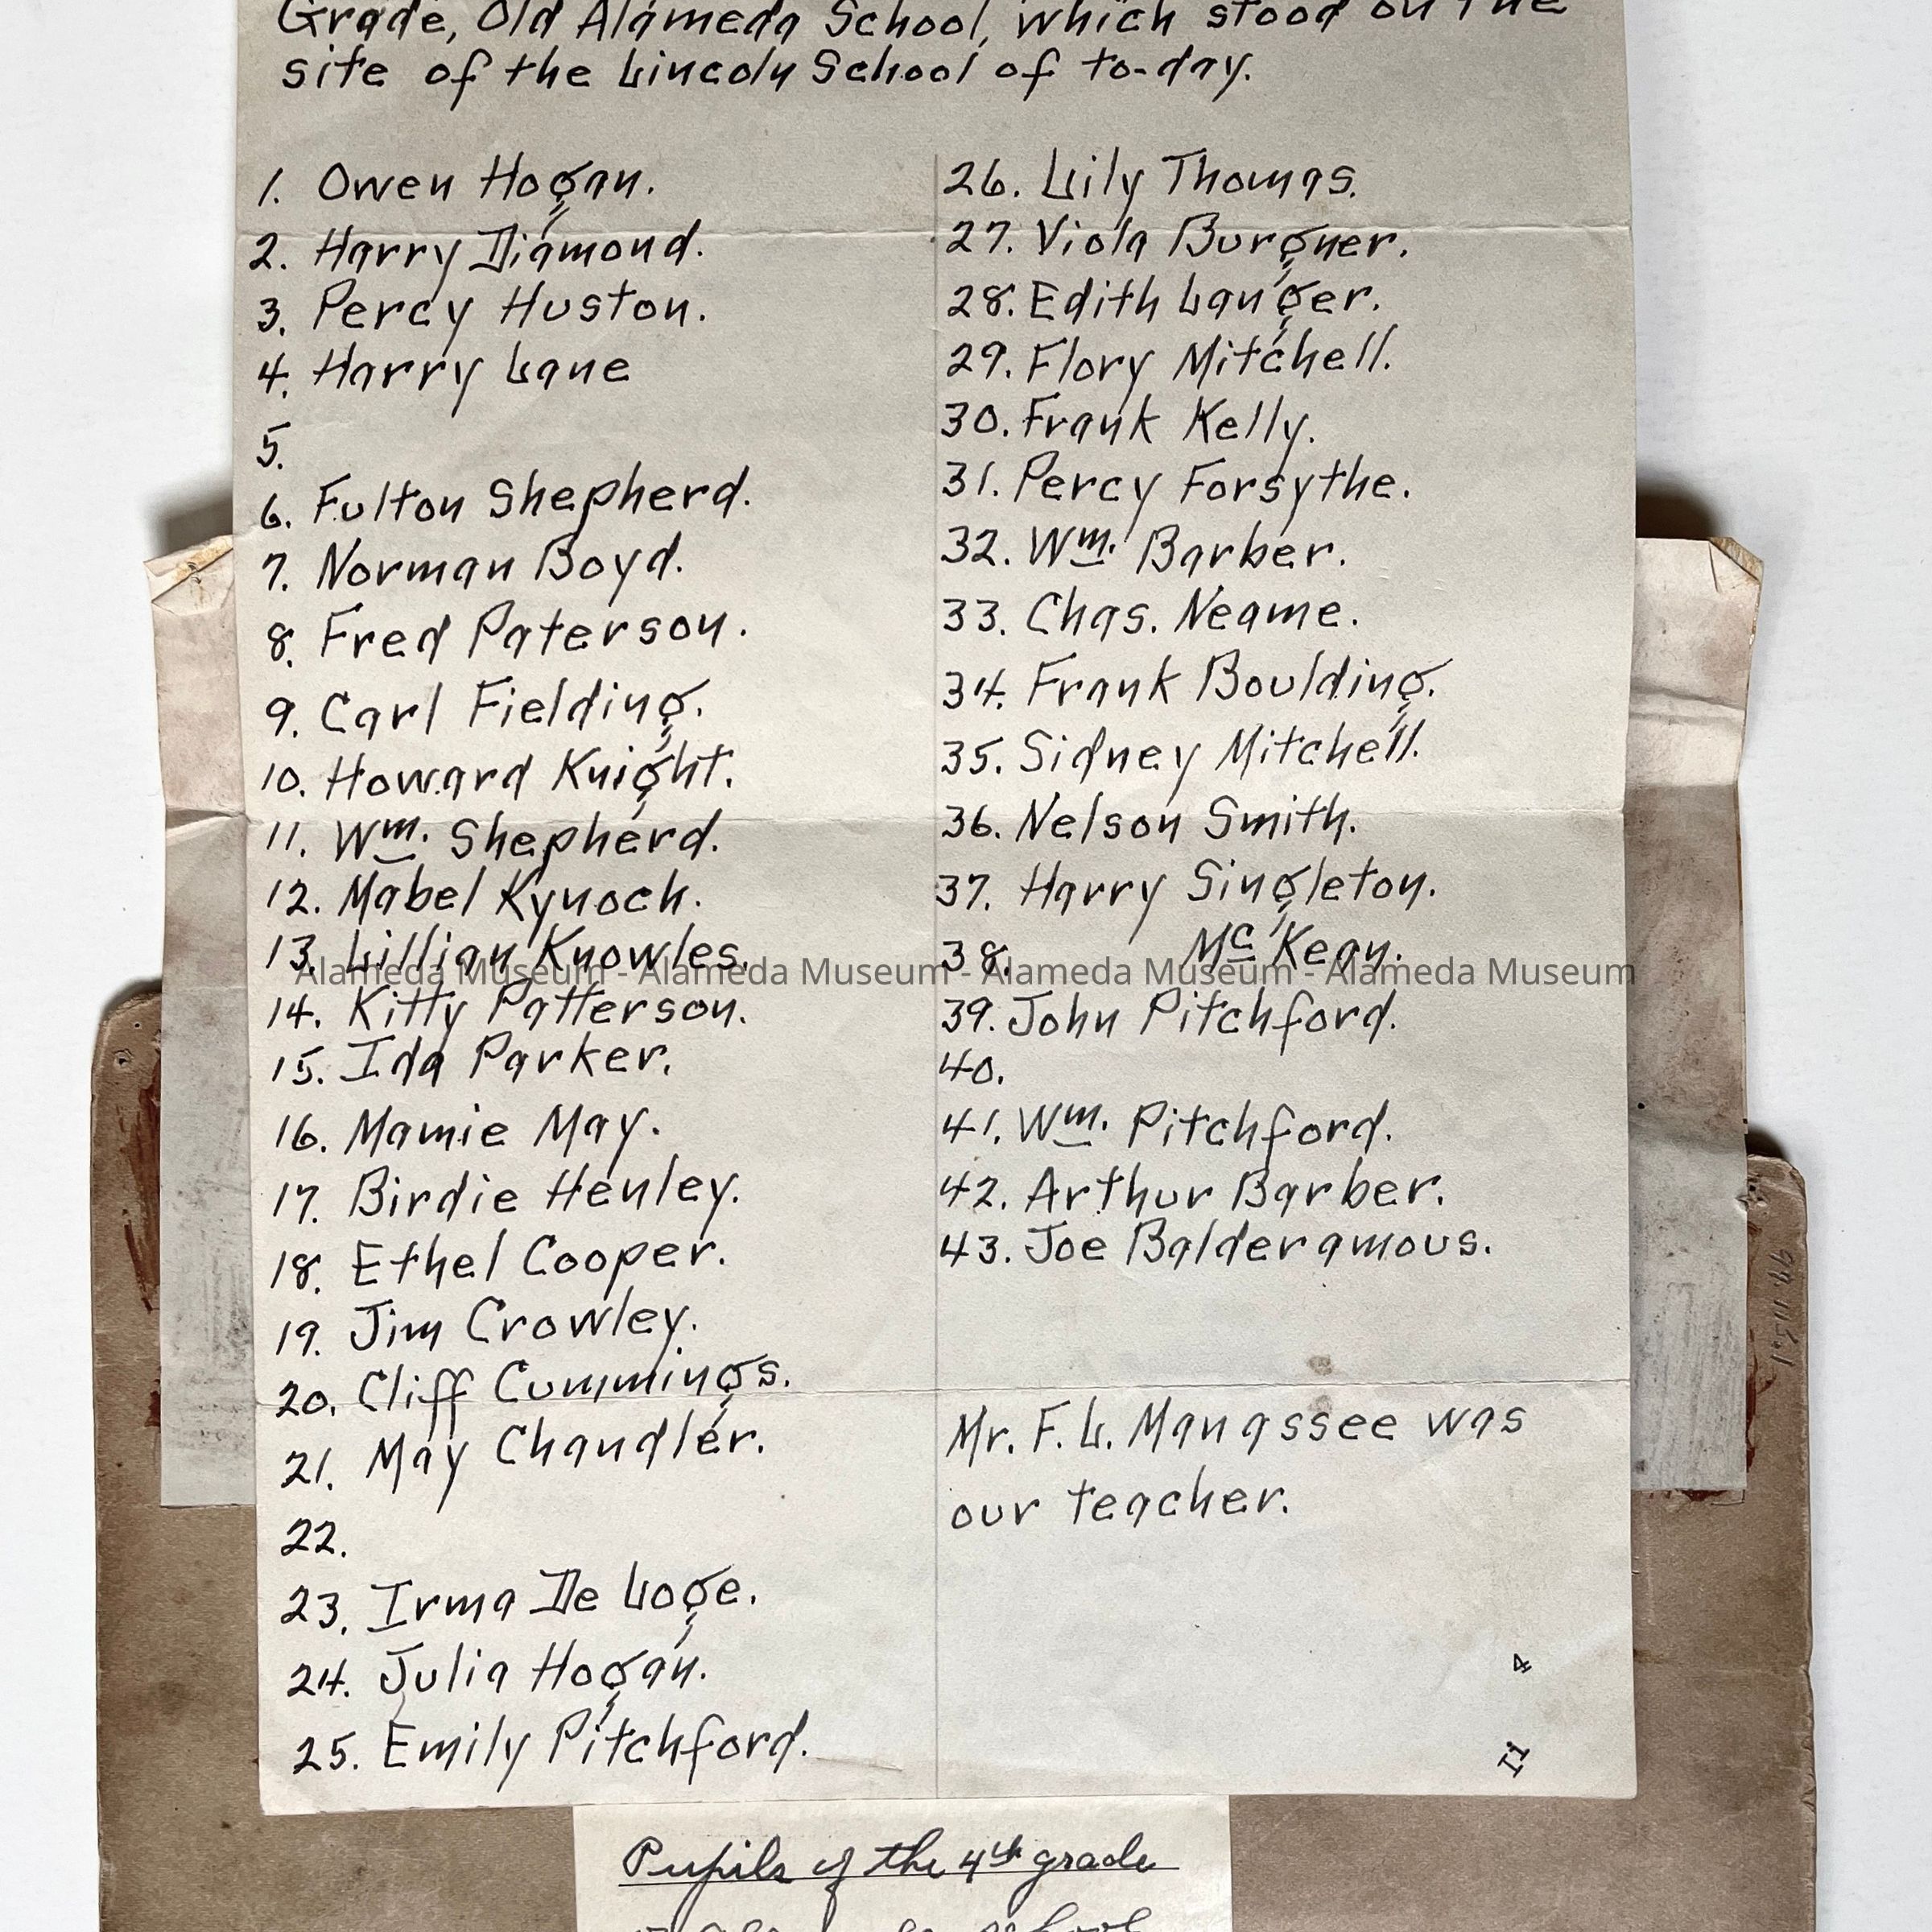 Grade, Old Alameda School, which stood on the
site of the Lincoln School of to-day.
1. Owen Hogan.
2. Harry Diamond.
3. Percy Huston.
4. Harry Lane
5.
6. Fulton Shepherd.
7. Norman Boyd.
8. Fred Paterson.
9. Carl Fielding.
10. Howard Knight.
11. Wm. Shepherd.
12. Mabel Kynoch.
13. Lillian Knowles.
14. Kitty Patterson.
15. Ida Parker.
16. Mamie May.
17. Birdie Henley.
18. Ethel Cooper.
19. Jim Crowley.
20. Cliff Cummings.
21. May Chandler.
22.
23. Irma De Loge.
24. Julia Hogan.
25. Emily Pitchford.
26. Lily Thomas.
27. Viola Burgner.
28. Edith Langer.
29. Flory Mitchell.
30. Frank Kelly.
31. Percy Forsythe.
32. Wm. Barber.
33. Chas. Neame.
34. Frank Boulding.
35. Sidney Mitchell.
36. Nelson Smith.
37. Harry Singleton.
38. McKean.
39. John Pitchford.
40.
41. Wm. Pitchford.
42. Arthur Barber.
43. Joe Balderamous.
Mr. F. L. Manassee was
our teacher.
4
I1
Alameda Museum - Alameda Museum - Alameda Museum - Alameda Museum
Pupils of the 4th grade
school